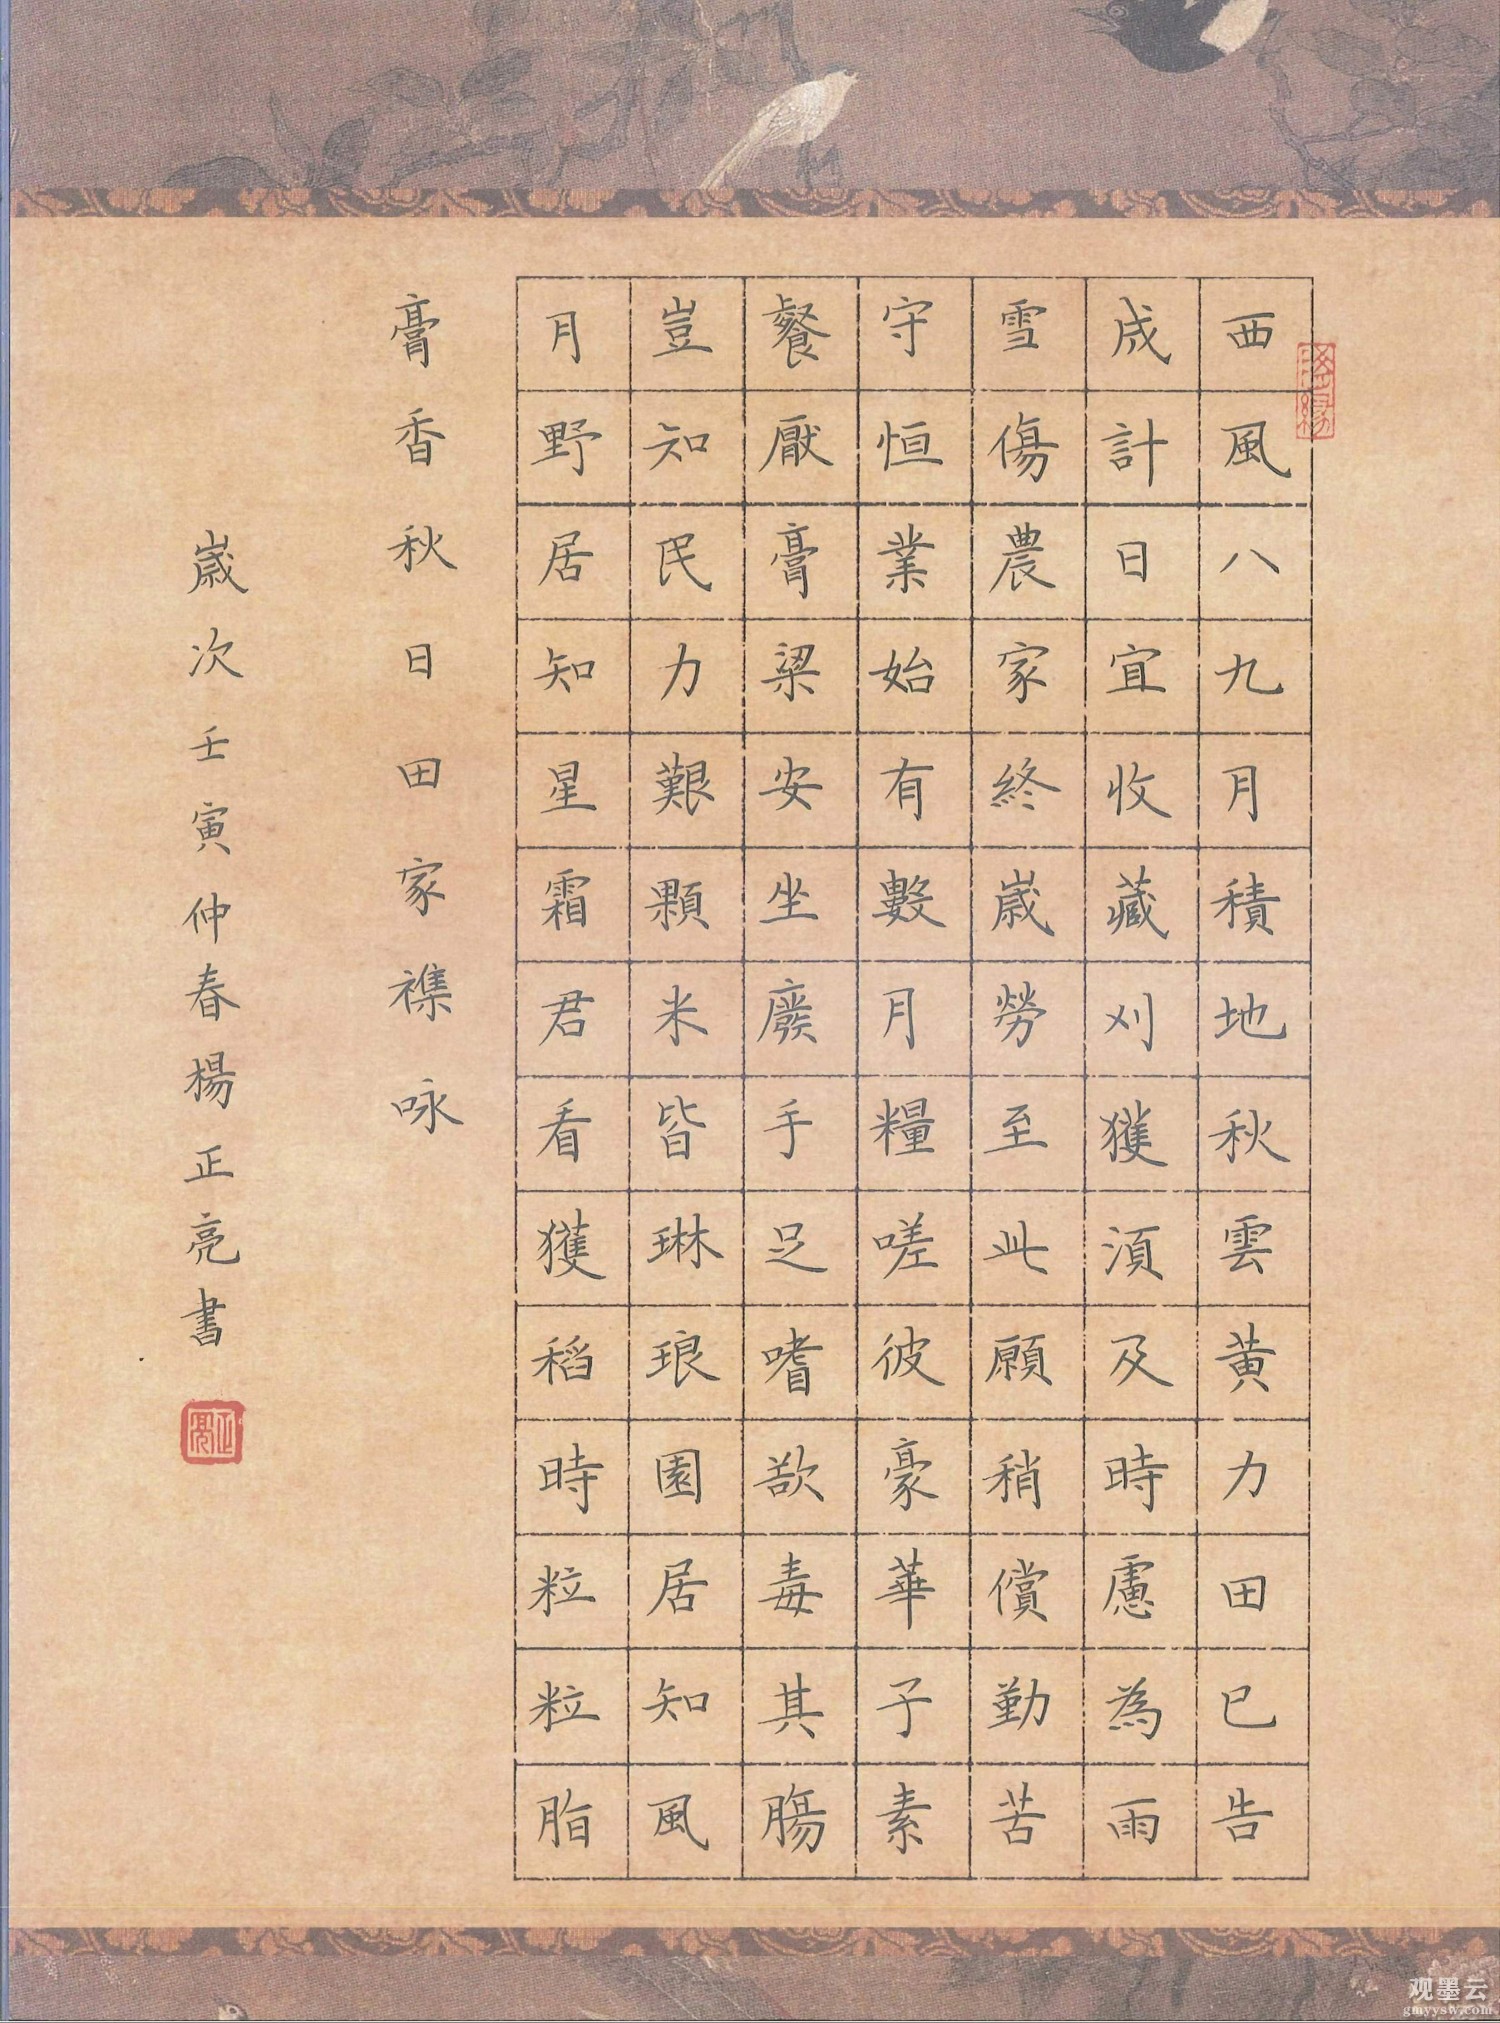 西風八九月積地秋雲黄力田已告
成計日宜收藏刈獲須及時慮為雨
雪傷農家終歲勞至此願稍償勤苦
守恒業始有數月糧嗟彼豪華子素
餐厭膏粱安坐廢手足嗜欲毒其腸
豈知民力艱顆米皆琳琅園居知風
月野居知星霜君看獲稻時粒粒脂
膏香秋日田家襍咏
歲次壬寅仲春楊正亮書
正亮
观墨云
gmyysw.com